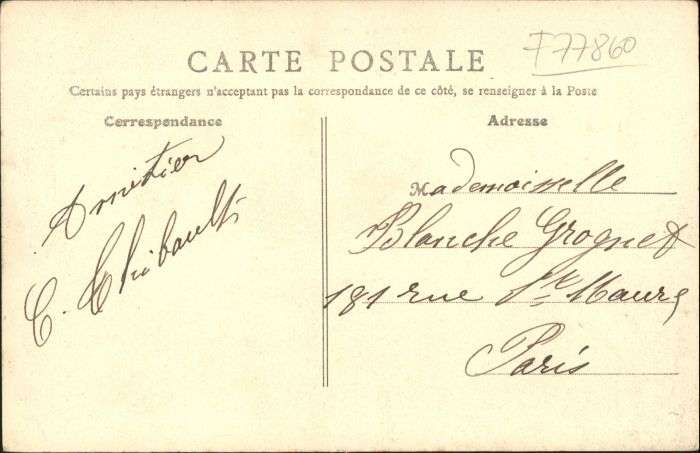 F77860
CARTE POSTALE
Certains pays étrangers n'acceptent pas la correspondance de ce côté, se renseigner à la Poste
Correspondance
Adresse
Amitier
C. Thibault
Mademoiselle
Blanche Grognet
181 rue St Maure
Paris